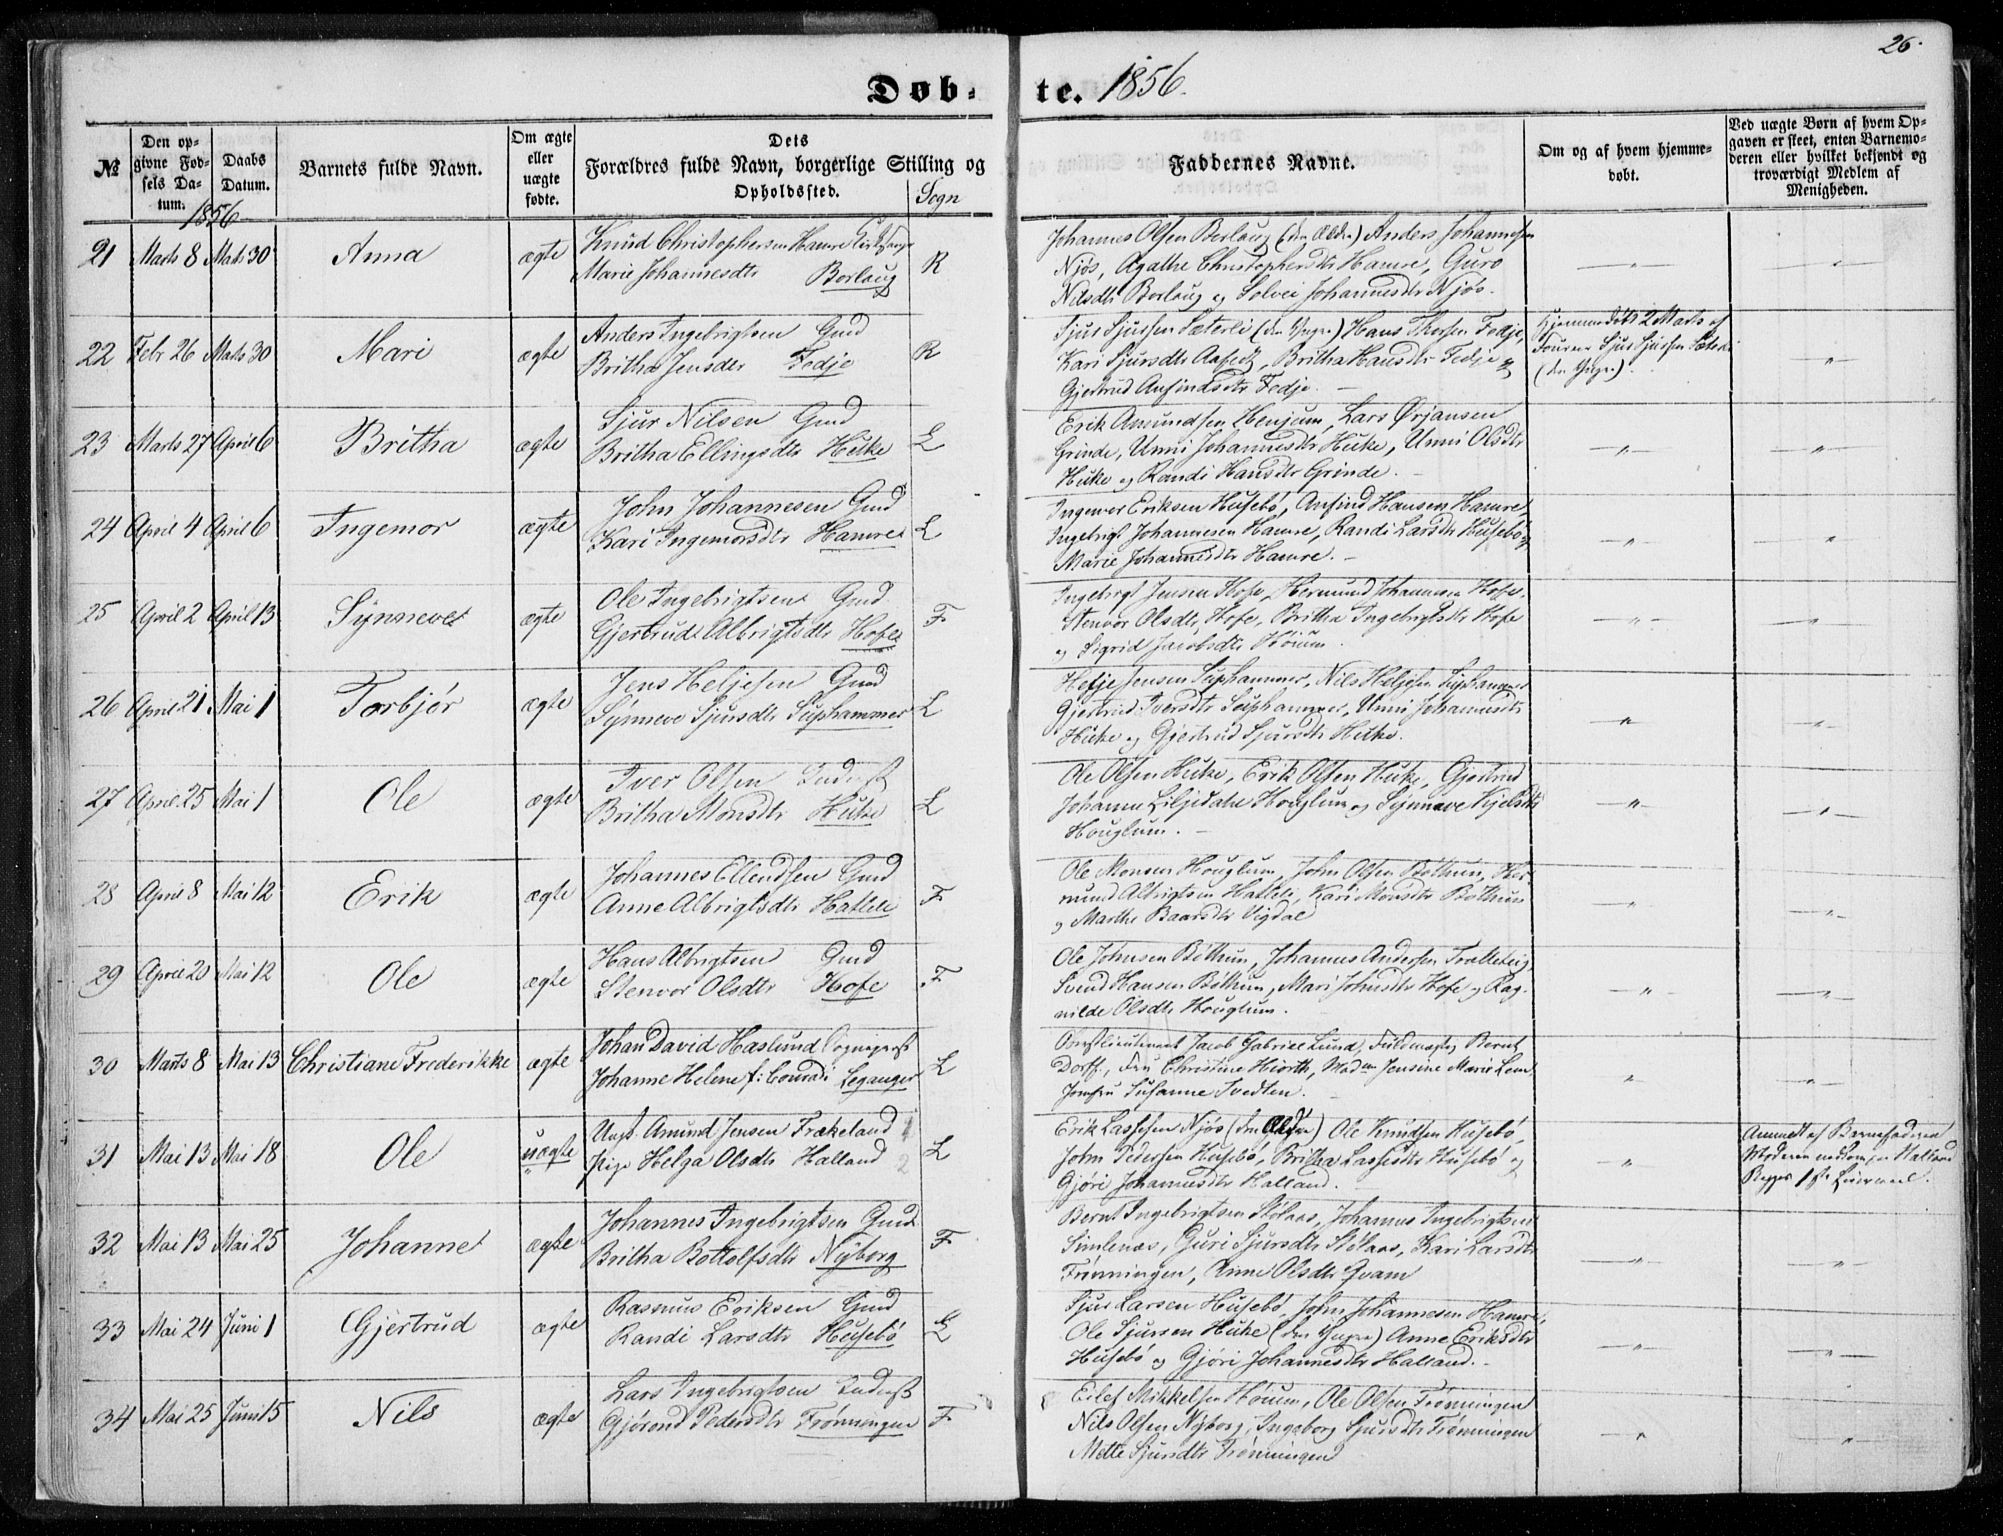 26.
Døb- te. 1856.
№
Den opgivne Fødsels Datum.
Daabs Datum.
Barnets fulde Navn.
Om ægte eller uægte fødte.
Dets Forældres fulde Navn, borgerlige Stilling og Opholdssted.
Sogn
Faddernes Navne.
Om og af hvem hjemmedøbt.
Ved uægte Børn af hvem Opgaven er skeet, enten Barnemoderen eller hvilket bekjendt og troværdigt Medlem af Menigheden.
1856
21 Marts 8 Mats 30 Anna ægte Knud Christophersen Hamre
Marie Johannesdtr Borlaug R
Johannes Olsen Borlaug (den Ældre) Anders Johannesen
Njøs, Agathe Christophersdtr Hamre, Guro
Nilsdtr Borlaug og Solvei Johannesdtr Njøs.
22 Febr 26 Mats 30 Mari ægte Anders Ingebrigtsen Gmd
Britha Jensdtr Fedje R
Sjur Sjursen Sæterli (den Yngre) Hans Thorsen Fedje,
Kari Sjursdtr Aafedt, Britha Hansdtr Fedje og
Gjertrud Ansindsdtr Fedje.
Hjemmedøbt 2 Marts af
Sjur Sjursen Sæterli
(den Yngre).
23 Marts 27 April 6 Britha ægte Sjur Nilsen Gmd
Britha Ellingsdtr Huke L
Erik Amundsen Henjum, Lars Ørjansen
Grinde, Unni Johannesdtr Huke, Unni Olsdtr
Huke og Randi Hansdtr Grinde.
24 April 4 April 6 Ingemor ægte John Johannesen Gmd
Kari Ingemorsdtr Hamre L
Ingemor Eriksen Husebø, Ansind Hansen Hamre
Ingebrigt Johannesen Hamre, Randi Larsdtr Husebø og
Marie Johannesdtr Hamre.
25 April 2 April 13 Synneve ægte Ole Ingebrigtsen Gmd
Gjertrud Albrigtsdtr Hofe F
Ingebrigt Jensen Hofe, Hermund Johannesen Hofe.
Stenvor Olsdtr Hofe, Britha Ingebrigtsdtr Hofe
og Sigrid Jacobsdtr
26 April 21 Mai 1 Torbjør ægte Jens Heljesen Gmd
Synneve Sjursdtr Suphammer L
Helje Jensen Suphammer, Nils Heljesen Suphammer
Gjertrud Iversdtr Suphammer, Unni Johannesdtr
Huke og Gjertrud Sjursdtr Huke.
27 April 25 Mai 1 Ole ægte Iver Olsen Inderst
Britha Monsdtr Huke L
Ole Olsen Huke, Erik Olsen Huke, Gjertrud
Johanne Liljedahl Houglum og Synneve Kjelsdtr
Houglum.
28 April 8 Mai 12 Erik ægte Johannes Ellendsen Gmd
Anne Albrigtsdtr Hatlele F
Ole Monsen Houglum, John Olsen Bøthun, Her-
mund Albrigtsen Hatlele, Kari Monsdtr Bøthun
og Marthe Baardsdtr Vigdal
29 April 20 Mai 12 Ole ægte Hans Albrigtsen Gmd
Stenvor Olsdtr Hofe F
Ole Johnsen Bøthum, Johannes Andersen Tralleteig,
Svend Hansen Bøthum, Mari Johnsdtr Hofe og Rag-
nilde Olsdtr Houglum.
30 Marts 8 Mai 13 Christiane Frederikke ægte Johan David Haslund Sognepræst
Johanne Helene f: Conradi Leganger L
Jacob Gabriel Lund, Fuldmægtig Bernt
Dorff, Fru Christine Hiorth, Madm Jensine Marie Lem
Jomfru Susanne Tvedten.
31 Mai 13 Mai 18 Ole uægte Ungk. Amund Jensen Frækeland 1
Pige Helga Olsdtr Halland 2 L
Erik Lassesen Njøs (den Ældre) Ole Knudsen Husebø,
John Pedersen Husebø, Britha Lassesdtr Husebø og
Gjøri Johannesdtr Halland.
Anmeldt af Barnefaderen
32 Mai 13 Mai 25 Johanne ægte Johannes Ingebrigtsen Gmd
Britha Bottolfsdtr Nyborg F
Bernt Ingebrigtsen Stølaas, Johannes Ingebrigtsen
Simlenæs, Guri Sjursdtr Stølaas, Kari Larsdtr
Frønningen, Anne Olsdtr Qvam
33 Mai 24 Juni 1 Gjertrud ægte Rasmus Eriksen Gmd
Randi Larsdtr Husebø L
Sjur Larsen Husebø, John Johannesen Hamre,
Ole Sjursen Huke (den Yngre) Anne Eriksdtr
Husebø og Gjøri Johannesdtr Halland.
34 Mai 25 Juni 15 Nils ægte Lars Ingebrigtsen Inderst
Gjørond Pedersdtr Frønningen F
Eilef Mikkelsen Ole Olsen Frønningen
Nils Olsen Nyborg, Ingeborg Sjursdtr Frønningen
Mette Sjursdtr Frønningen